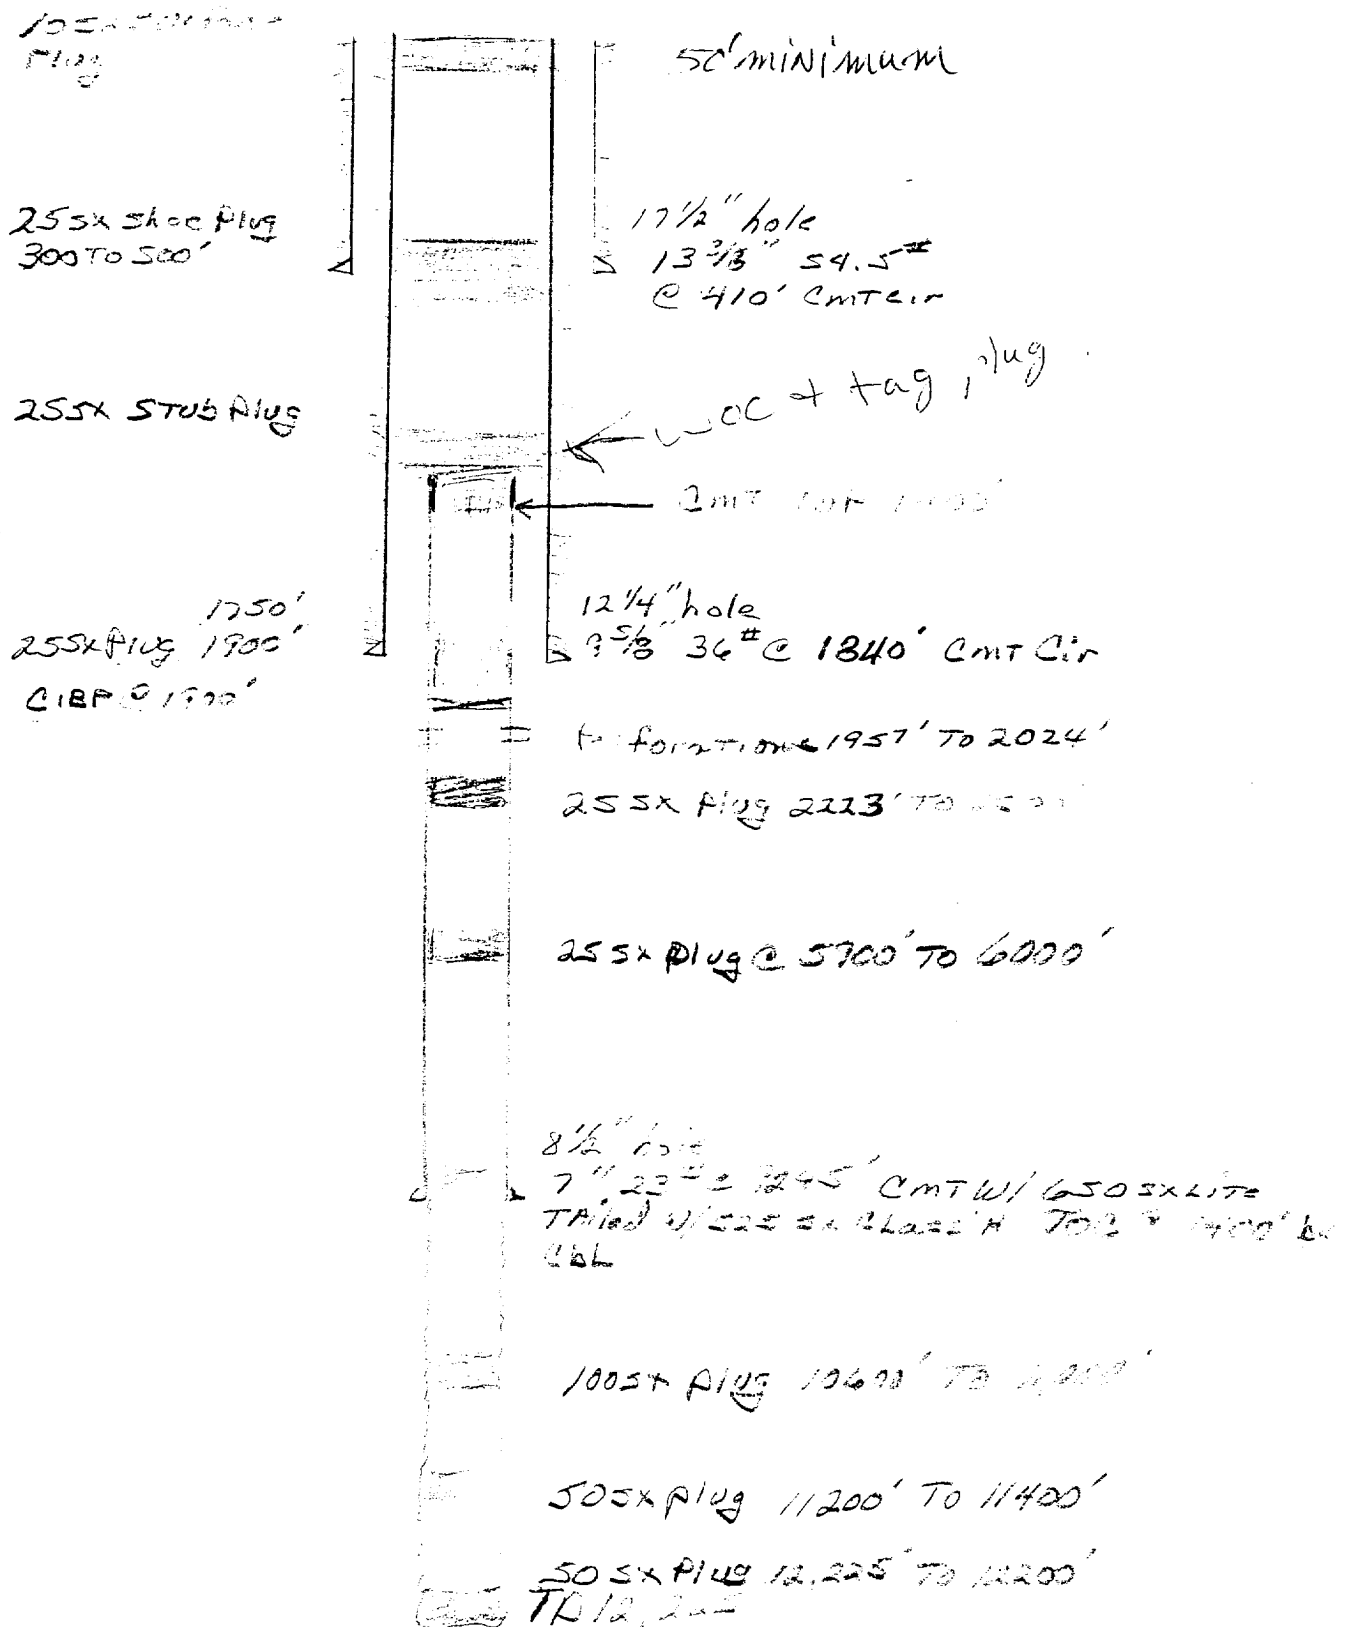 Plug
50' minimum
25 sx shoe Plug
300 TO 500'
17 1/2" hole
13 3/8" 54.5#
@ 410' Cmt Cir
25 sx STub Plug
WOC + tag plug
Cmt
1750'
25 sx Plug 1900'
CIBP @ 1900'
12 1/4" hole
9 5/8" 36# @ 1840' Cmt Cir
1957' To 2024'
25 sx Plug 2223' TO
25 sx Plug @ 5700' TO 6000'
8 1/2" hole
7" 23# Cmt W/ 650 sx Lite
Tailed W/ 525 sx Class H TOC
CbL
100 sx Plug 10600' TO
50 sx plug 11200' To 11400'
50 sx Plug 12,225' To 12200'
TD 12,225